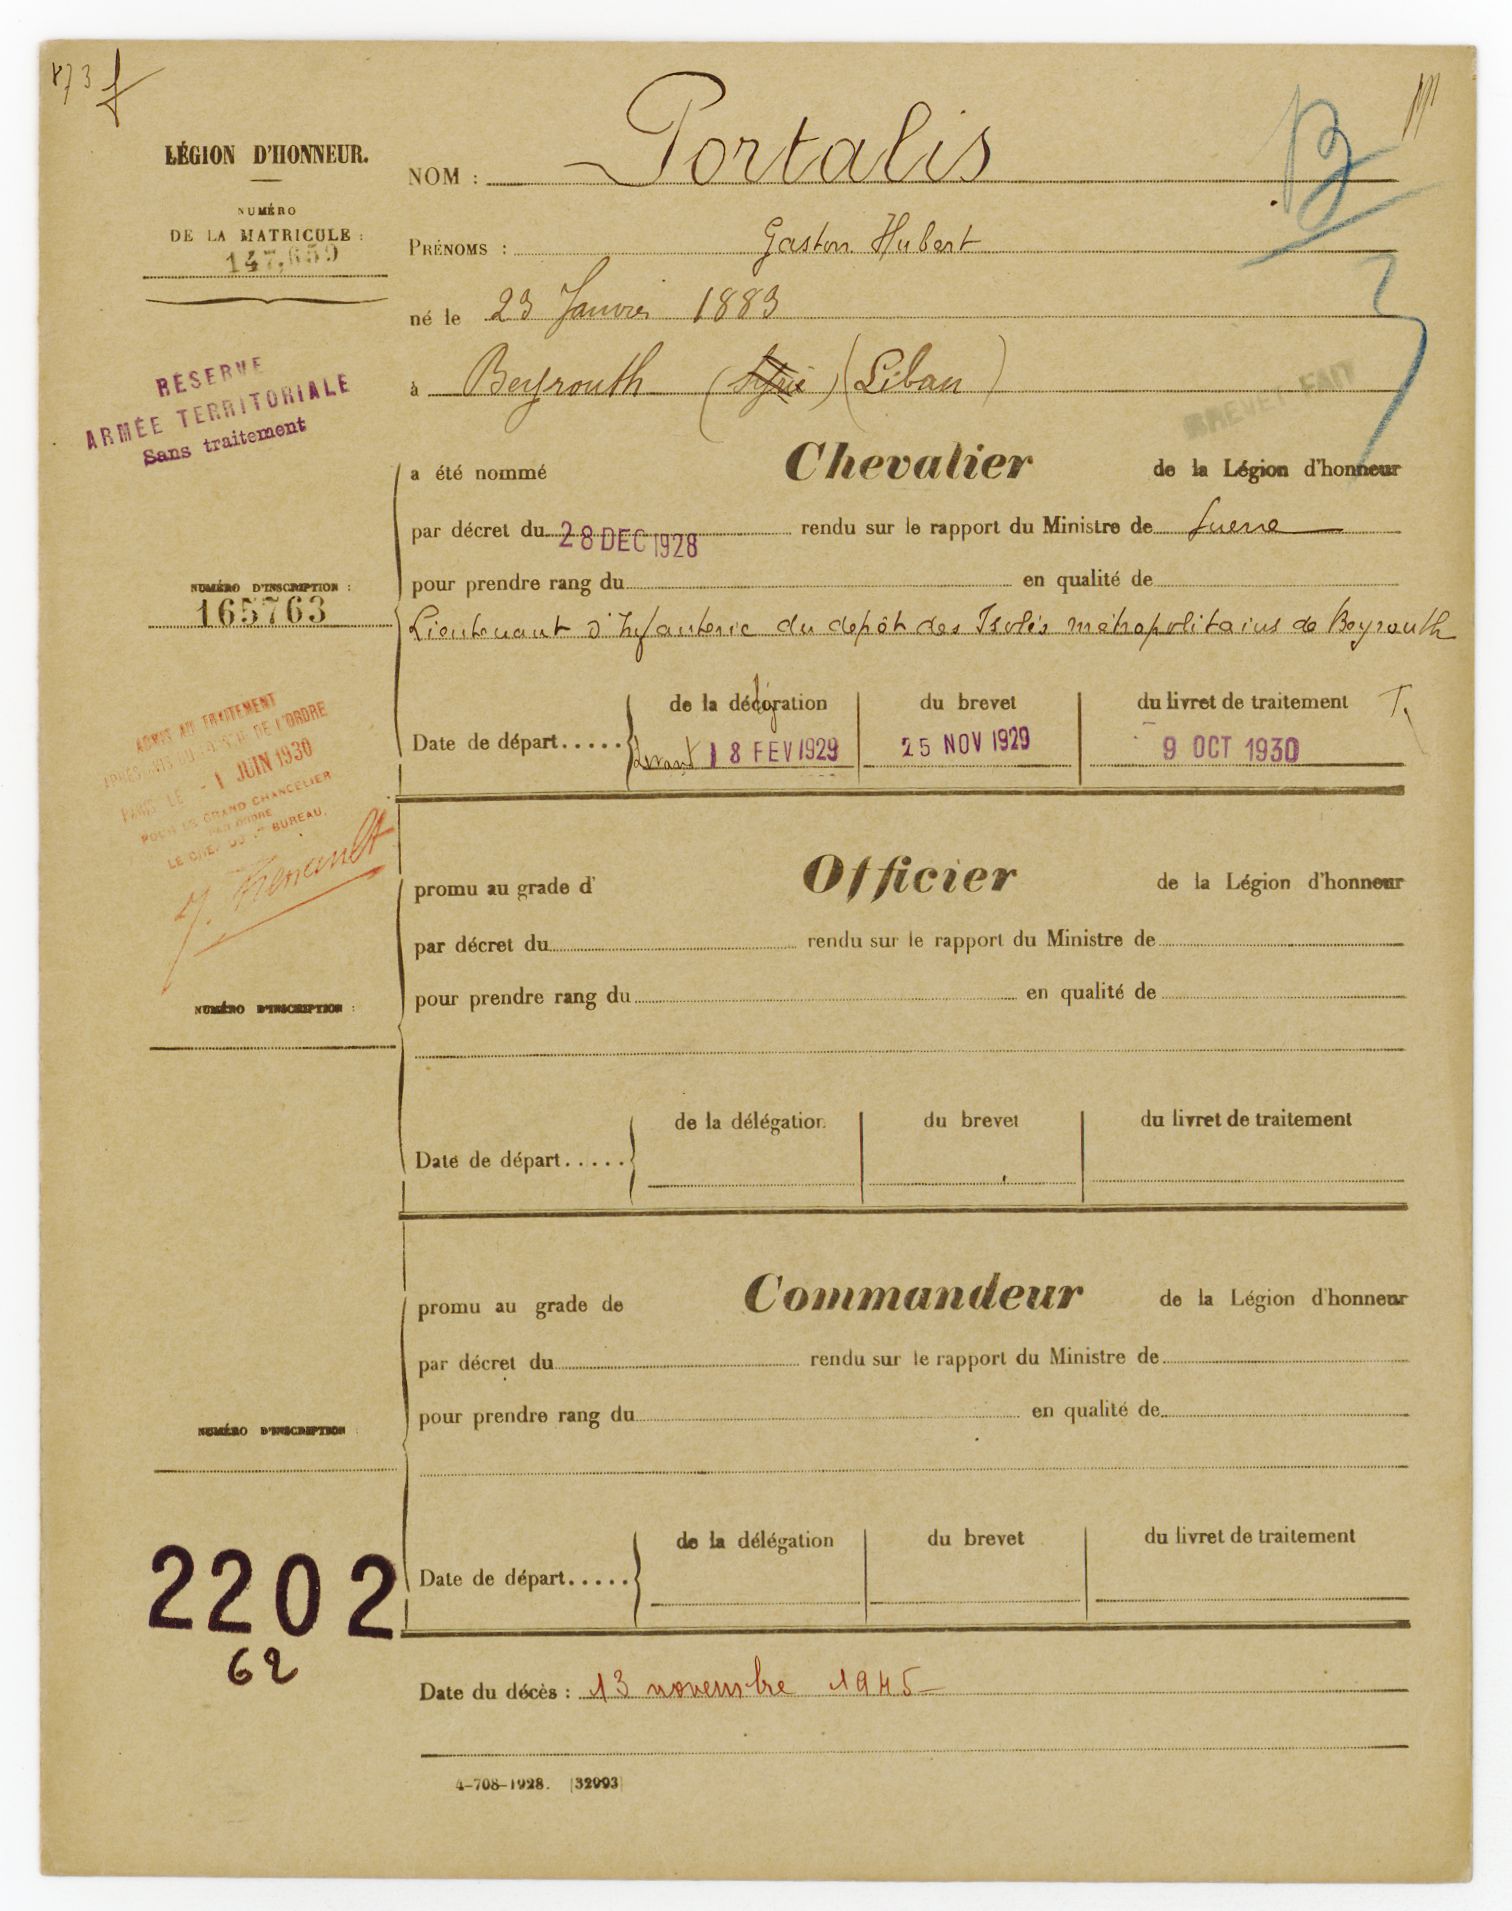 173
LÉGION D'HONNEUR.
NUMÉRO
DE LA MATRICULE :
147,659
NOM : Portalis
PRÉNOMS : Gaston Hubert
né le 23 Janvier 1883
à Beyrouth (Syrie) (Liban)
RÉSERVE
ARMÉE TERRITORIALE
Sans traitement
BREVET FAIT
a été nommé Chevalier de la Légion d'honneur
par décret du 28 DEC 1928 rendu sur le rapport du Ministre de Guerre
pour prendre rang du en qualité de
NUMÉRO D'INSCRIPTION :
165763
Lieutenant d'Infanterie du dépôt des Isolés métropolitains de Beyrouth
de la décoration du brevet du livret de traitement T.
Date de départ..... Levant 18 FEV 1929 25 NOV 1929 9 OCT 1930
ADMIS AU TRAITEMENT
APRÈS AVIS DU CONSEIL DE L'ORDRE
PARIS LE - 1 JUIN 1930
POUR LE GRAND CHANCELIER
PAR ORDRE
LE CHEF DU 1er BUREAU.
promu au grade d' Officier de la Légion d'honneur
par décret du rendu sur le rapport du Ministre de
pour prendre rang du en qualité de
NUMÉRO D'INSCRIPTION :
de la délégation du brevet du livret de traitement
Date de départ.....
promu au grade de Commandeur de la Légion d'honneur
par décret du rendu sur le rapport du Ministre de
pour prendre rang du en qualité de
NUMÉRO D'INSCRIPTION :
de la délégation du brevet du livret de traitement
Date de départ.....
2202
62
Date du décès : 13 novembre 1945
4-708-1928. [32993]